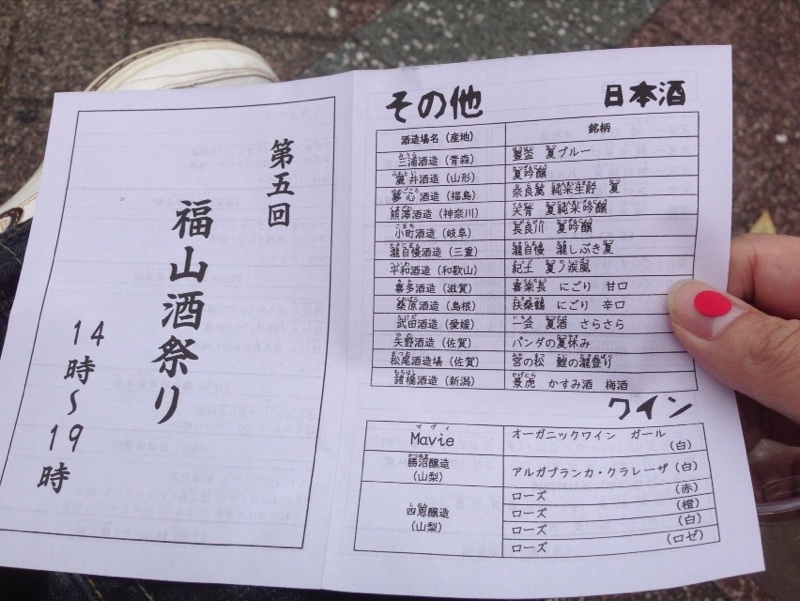 第五回
福山酒祭り
14時～19時
その他
日本酒
酒造場名（産地） 銘柄
三浦酒造（青森） 豊盃 夏ブルー
麓井酒造（山形） 夏吟醸
夢心酒造（福島） 奈良萬 純米生貯 夏
熊澤酒造（神奈川） 天青 夏純米吟醸
小町酒造（岐阜） 長良川 夏吟醸
瀧自慢酒造（三重） 瀧自慢 滝しぶき夏
平和酒造（和歌山） 紀土 夏ノ疾風
喜多酒造（滋賀） 喜楽長 にごり 甘口
桑原酒造（島根） 扶桑鶴 にごり 辛口
武田酒造（愛媛） 一会 夏酒 さらさら
矢野酒造（佐賀） パンダの夏休み
松尾酒造場（佐賀） 宮の松 鯉の瀧登り
諸橋酒造（新潟） 景虎 かすみ酒 梅酒
ワイン
マヴィ
Mavie オーガニックワイン ガール（白）
勝沼醸造（山梨） アルガブランカ・クラレーザ（白）
四恩醸造（山梨） ローズ（赤）
ローズ（橙）
ローズ（白）
ローズ（ロゼ）